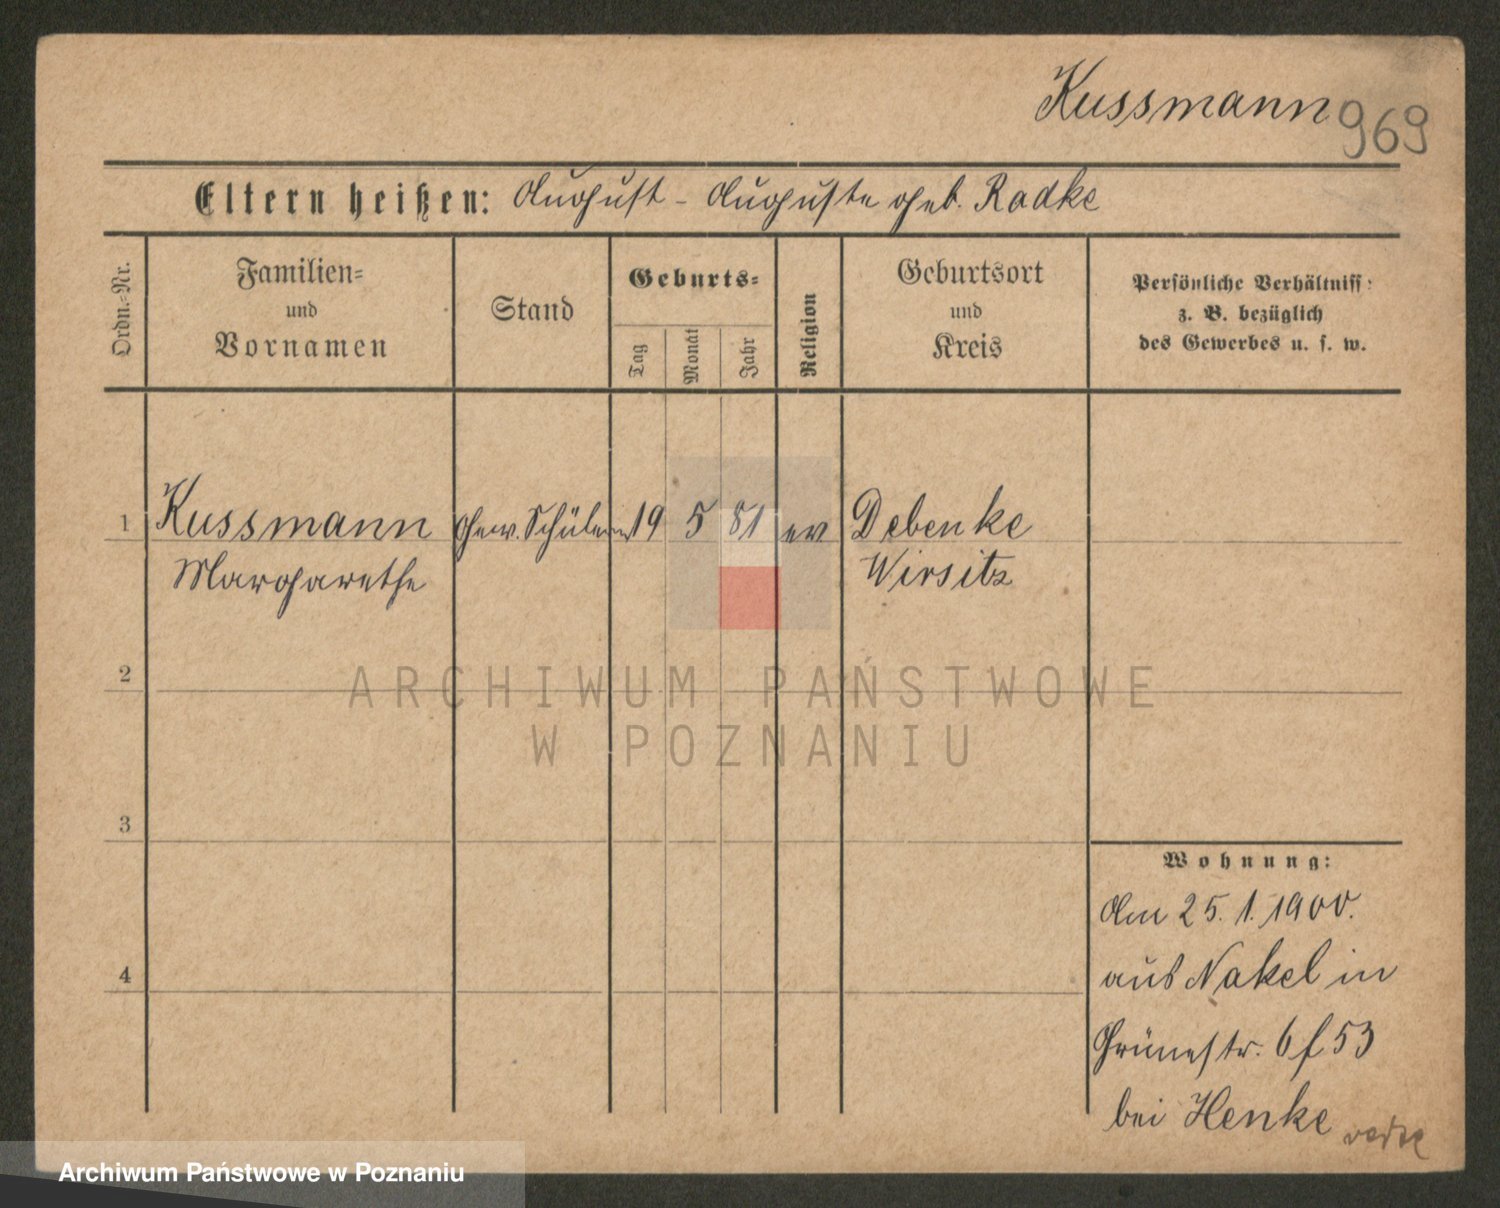 Kussmann 969
Eltern heißen: August - Auguste geb. Radke
Ordn.=Nr.
Familien=
und
Vornamen
Stand
Geburts=
Tag
Monat
Jahr
Religion
Geburtsort
und
Kreis
Persönliche Verhältniss:
z. B. bezüglich
des Gewerbes u. s. w.
1 Kussmann Gew. Schülerin 19 5 81 ev Debenke
Margarethe Wirsitz
2
ARCHIWUM PAŃSTWOWE
W POZNANIU
3
Wohnung:
Am 25.1.1900.
4 aus Nakel in
Grünestr. 6 f 53
bei Henke
Archiwum Państwowe w Poznaniu